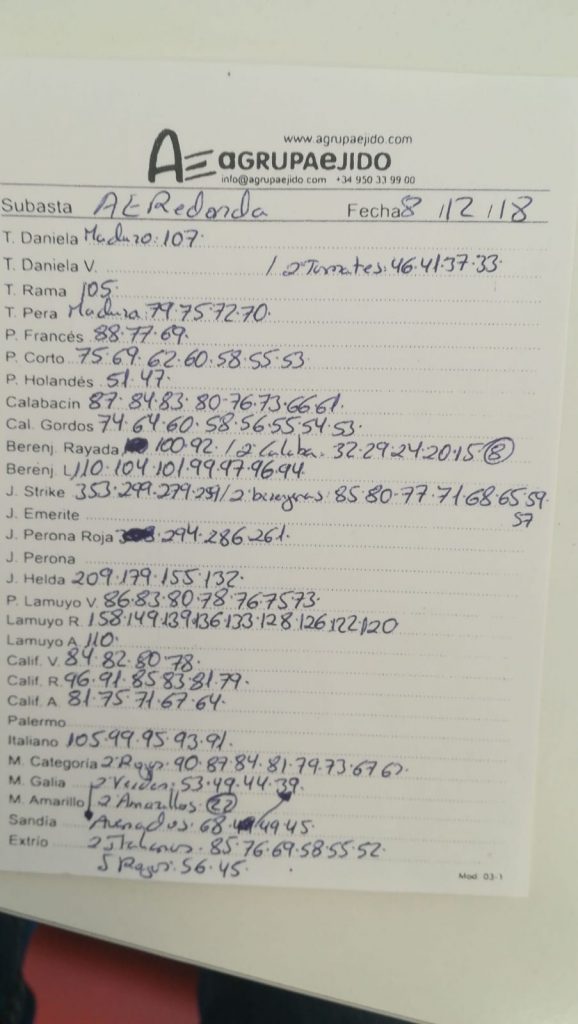 www.agrupaejido.com
AE AGRUPAEJIDO
info@agrupaejido.com +34 950 33 99 00
Subasta AE Redonda Fecha 8 /12 /18
T. Daniela Maduro. 107.
T. Daniela V. / 2ªTomates. 46.41.37.33.
T. Rama 105.
T. Pera Madura. 79.75.72.70.
P. Francés 88.77.69.
P. Corto 75.69.62.60.58.55.53.
P. Holandés 51.47.
Calabacin 87.84.83.80.76.73.66.61.
Cal. Gordos 74.64.60.58.56.55.54.53.
Berenj. Rayada 100.92. / 2ª Calaba. 32.29.24.20.15 8
Berenj. L. 110.104.101.99.97.96.94
J. Strike 353.299.279.251/2 berengenas 85.80.77.71.68.65.59.
57
J. Emerite
J. Perona Roja 294.286.261.
J. Perona
J. Helda 209.179.155.132.
P. Lamuyo V. 86.83.80.78.76.75.73.
Lamuyo R. 158.149.139.136.133.128.126.122.120
Lamuyo A. 110.
Calif. V. 84.82.80.78.
Calif. R. 96.91.85.83.81.79.
Calif. A. 81.75.71.67.64.
Palermo
Italiano 105.99.95.93.91.
M. Categoria 2 Rojos. 90.87.84.81.79.73.67.62
M. Galia 2 Verdes. 53.49.44.39.
M. Amarillo 2 Amarillos. 22
Sandía Asenados. 68. 49.45.
Extrio 2 Italianos. 85.76.69.58.55.52.
5 Rojos. 56.45.
Mod. 03-1